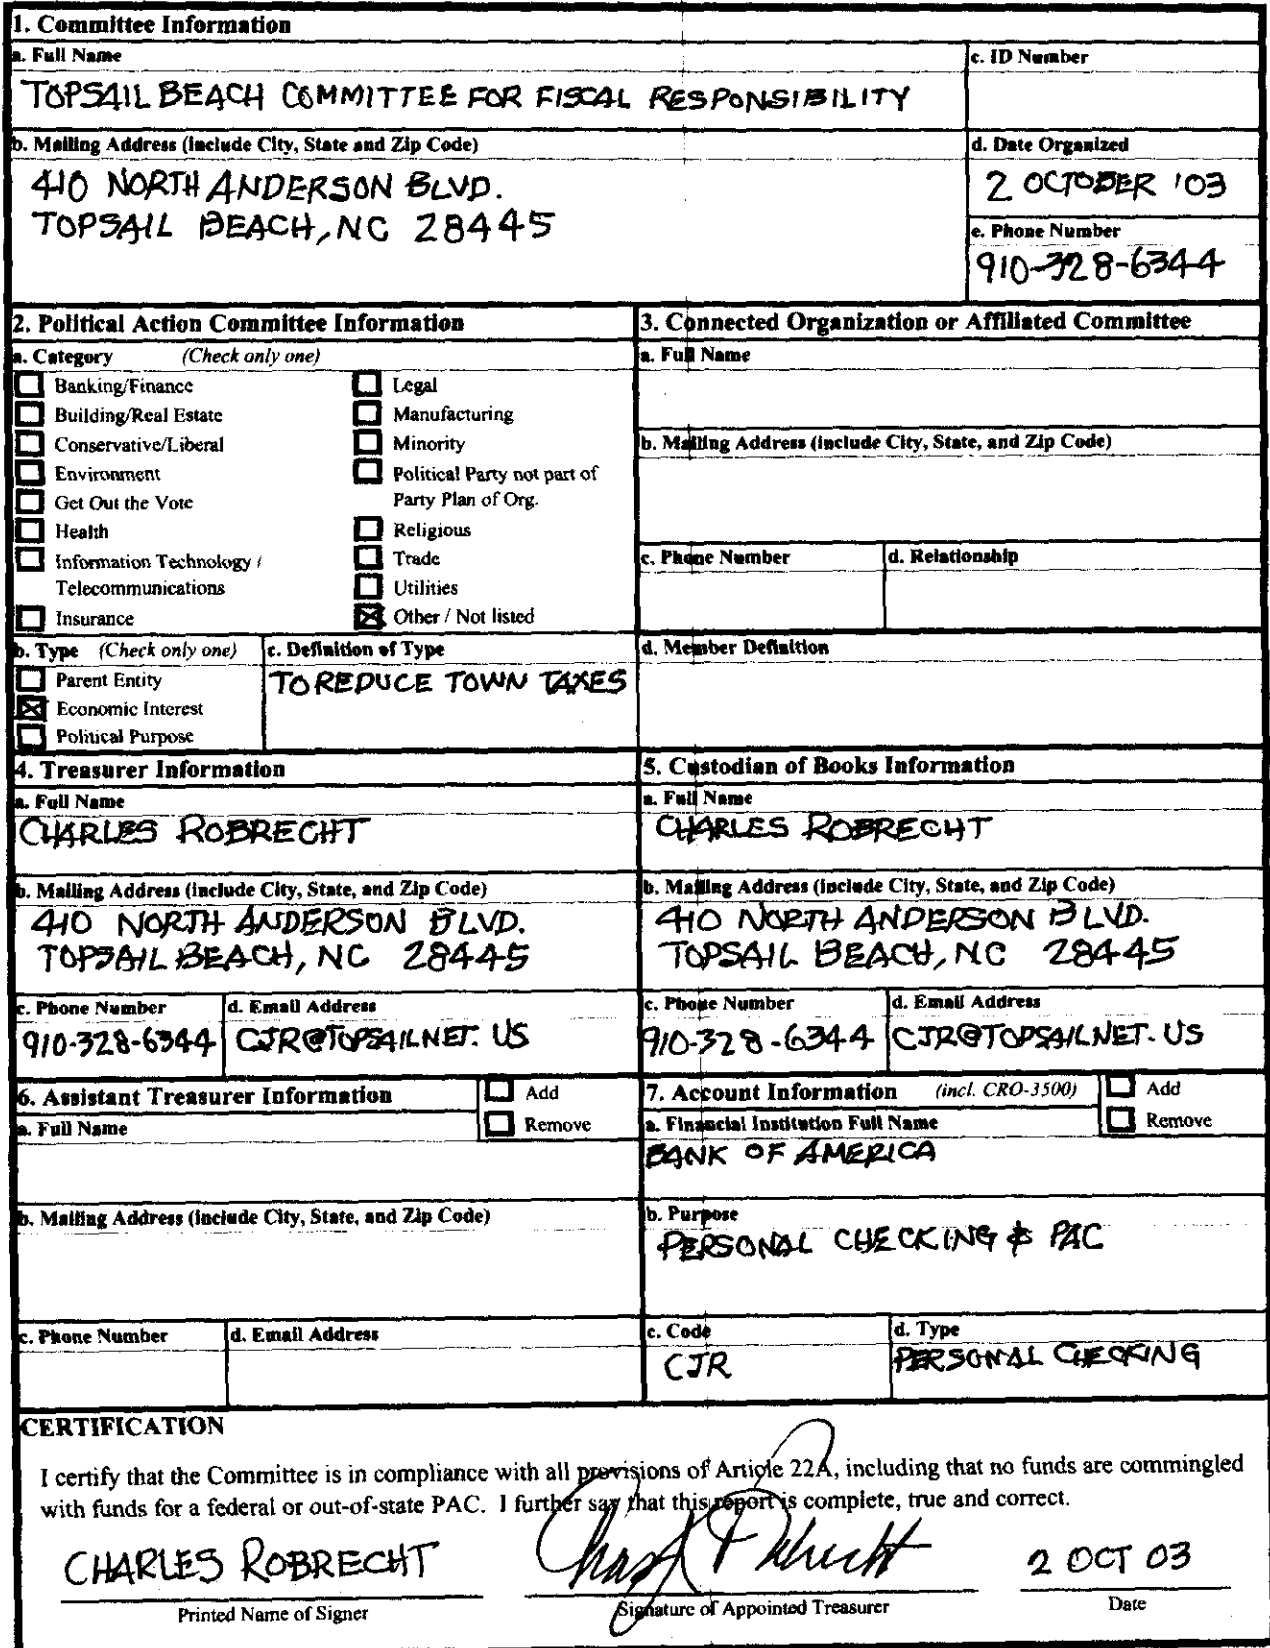 1. Committee Information
a. Full Name
c. ID Number
TOPSAIL BEACH COMMITTEE FOR FISCAL RESPONSIBILITY
b. Mailing Address (include City, State and Zip Code)
d. Date Organized
410 NORTH ANDERSON BLVD.
2 OCTOBER '03
TOPSAIL BEACH, NC 28445
e. Phone Number
910-328-6344
2. Political Action Committee Information
a. Category (Check only one)
Banking/Finance
Building/Real Estate
Conservative/Liberal
Environment
Get Out the Vote
Health
Information Technology /
Telecommunications
Insurance
Legal
Manufacturing
Minority
Political Party not part of
Party Plan of Org.
Religious
Trade
Utilities
Other / Not listed
3. Connected Organization or Affiliated Committee
a. Full Name
b. Mailing Address (include City, State, and Zip Code)
c. Phone Number
d. Relationship
b. Type (Check only one)
Parent Entity
Economic Interest
Political Purpose
c. Definition of Type
TO REDUCE TOWN TAXES
d. Member Definition
4. Treasurer Information
a. Full Name
CHARLES ROBRECHT
b. Mailing Address (include City, State, and Zip Code)
410 NORTH ANDERSON BLVD.
TOPSAIL BEACH, NC 28445
c. Phone Number
910-328-6344
d. Email Address
CJR@TOPSAILNET.US
5. Custodian of Books Information
a. Full Name
CHARLES ROBRECHT
b. Mailing Address (include City, State, and Zip Code)
410 NORTH ANDERSON BLVD.
TOPSAIL BEACH, NC 28445
c. Phone Number
910-328-6344
d. Email Address
CJR@TOPSAILNET.US
6. Assistant Treasurer Information
Add
Remove
a. Full Name
b. Mailing Address (include City, State, and Zip Code)
c. Phone Number
d. Email Address
7. Account Information (incl. CRO-3500)
Add
Remove
a. Financial Institution Full Name
BANK OF AMERICA
b. Purpose
PERSONAL CHECKING & PAC
c. Code
CJR
d. Type
PERSONAL CHECKING
CERTIFICATION
I certify that the Committee is in compliance with all provisions of Article 22A, including that no funds are commingled
with funds for a federal or out-of-state PAC. I further say that this report is complete, true and correct.
CHARLES ROBRECHT
Chas J Robrecht
2 OCT 03
Printed Name of Signer
Signature of Appointed Treasurer
Date